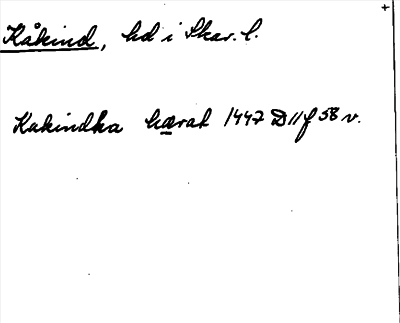 Kåkind, hd i Skar. l.
Kakindka hærat 1447 D 11 f 58 v.